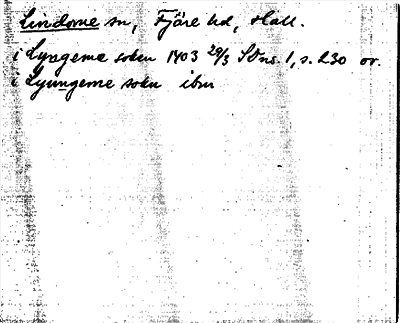 Lindome sn, Fjäre hd, Hall.
i Lyngeme soken 1403 29/3 SDns 1, s. 230 or.
i Lyungeme sokn ibm